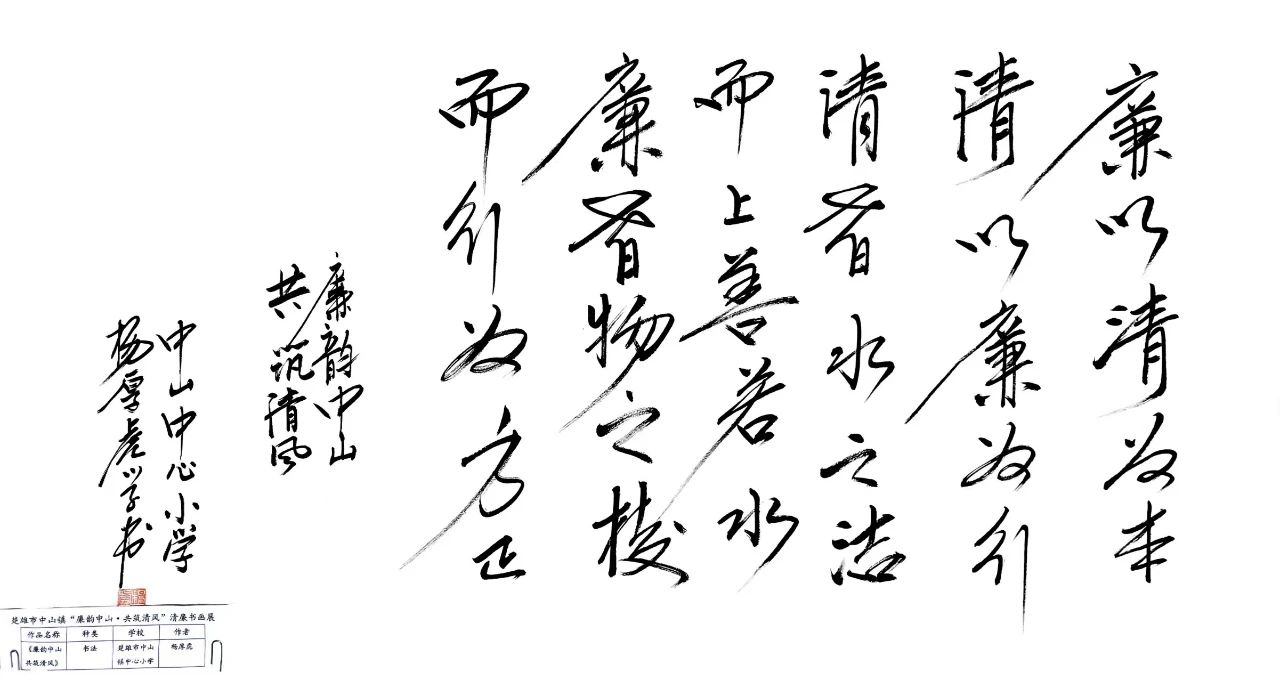 廉以清为本
清以廉为行
清者水之洁
而上善若水
廉者物之棱
而行为方正
廉韵中山
共筑清风
中山中心小学
杨厚虎学书
楚雄市中山镇“廉韵中山·共筑清风”清廉书画展
作品名称 种类 学校 作者
《廉韵中山 书法 楚雄市中山 杨厚虎
共筑清风》 镇中心小学